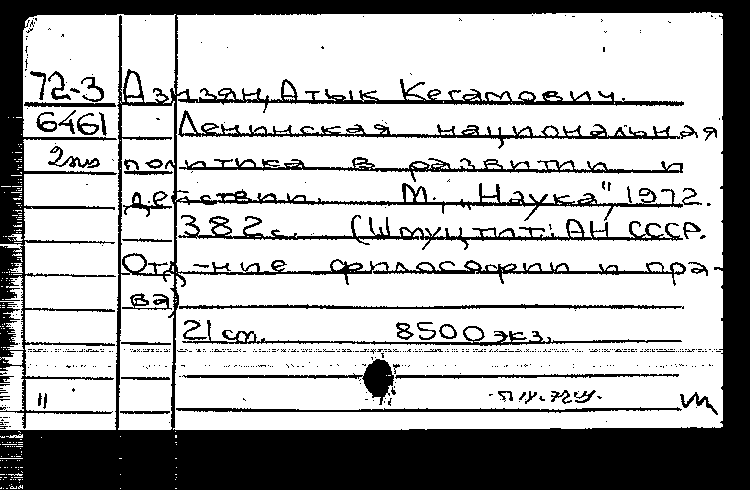 72-3 Дзизян, Атык Кегамович.
6461 Ленинская национальная
политика в развитии и
действии. М., „Наука", 1972.
382 с. (Шмуцтит: АН СССР.
Отд-ние философии и пра-
ва)
21 см. 8500 экз.